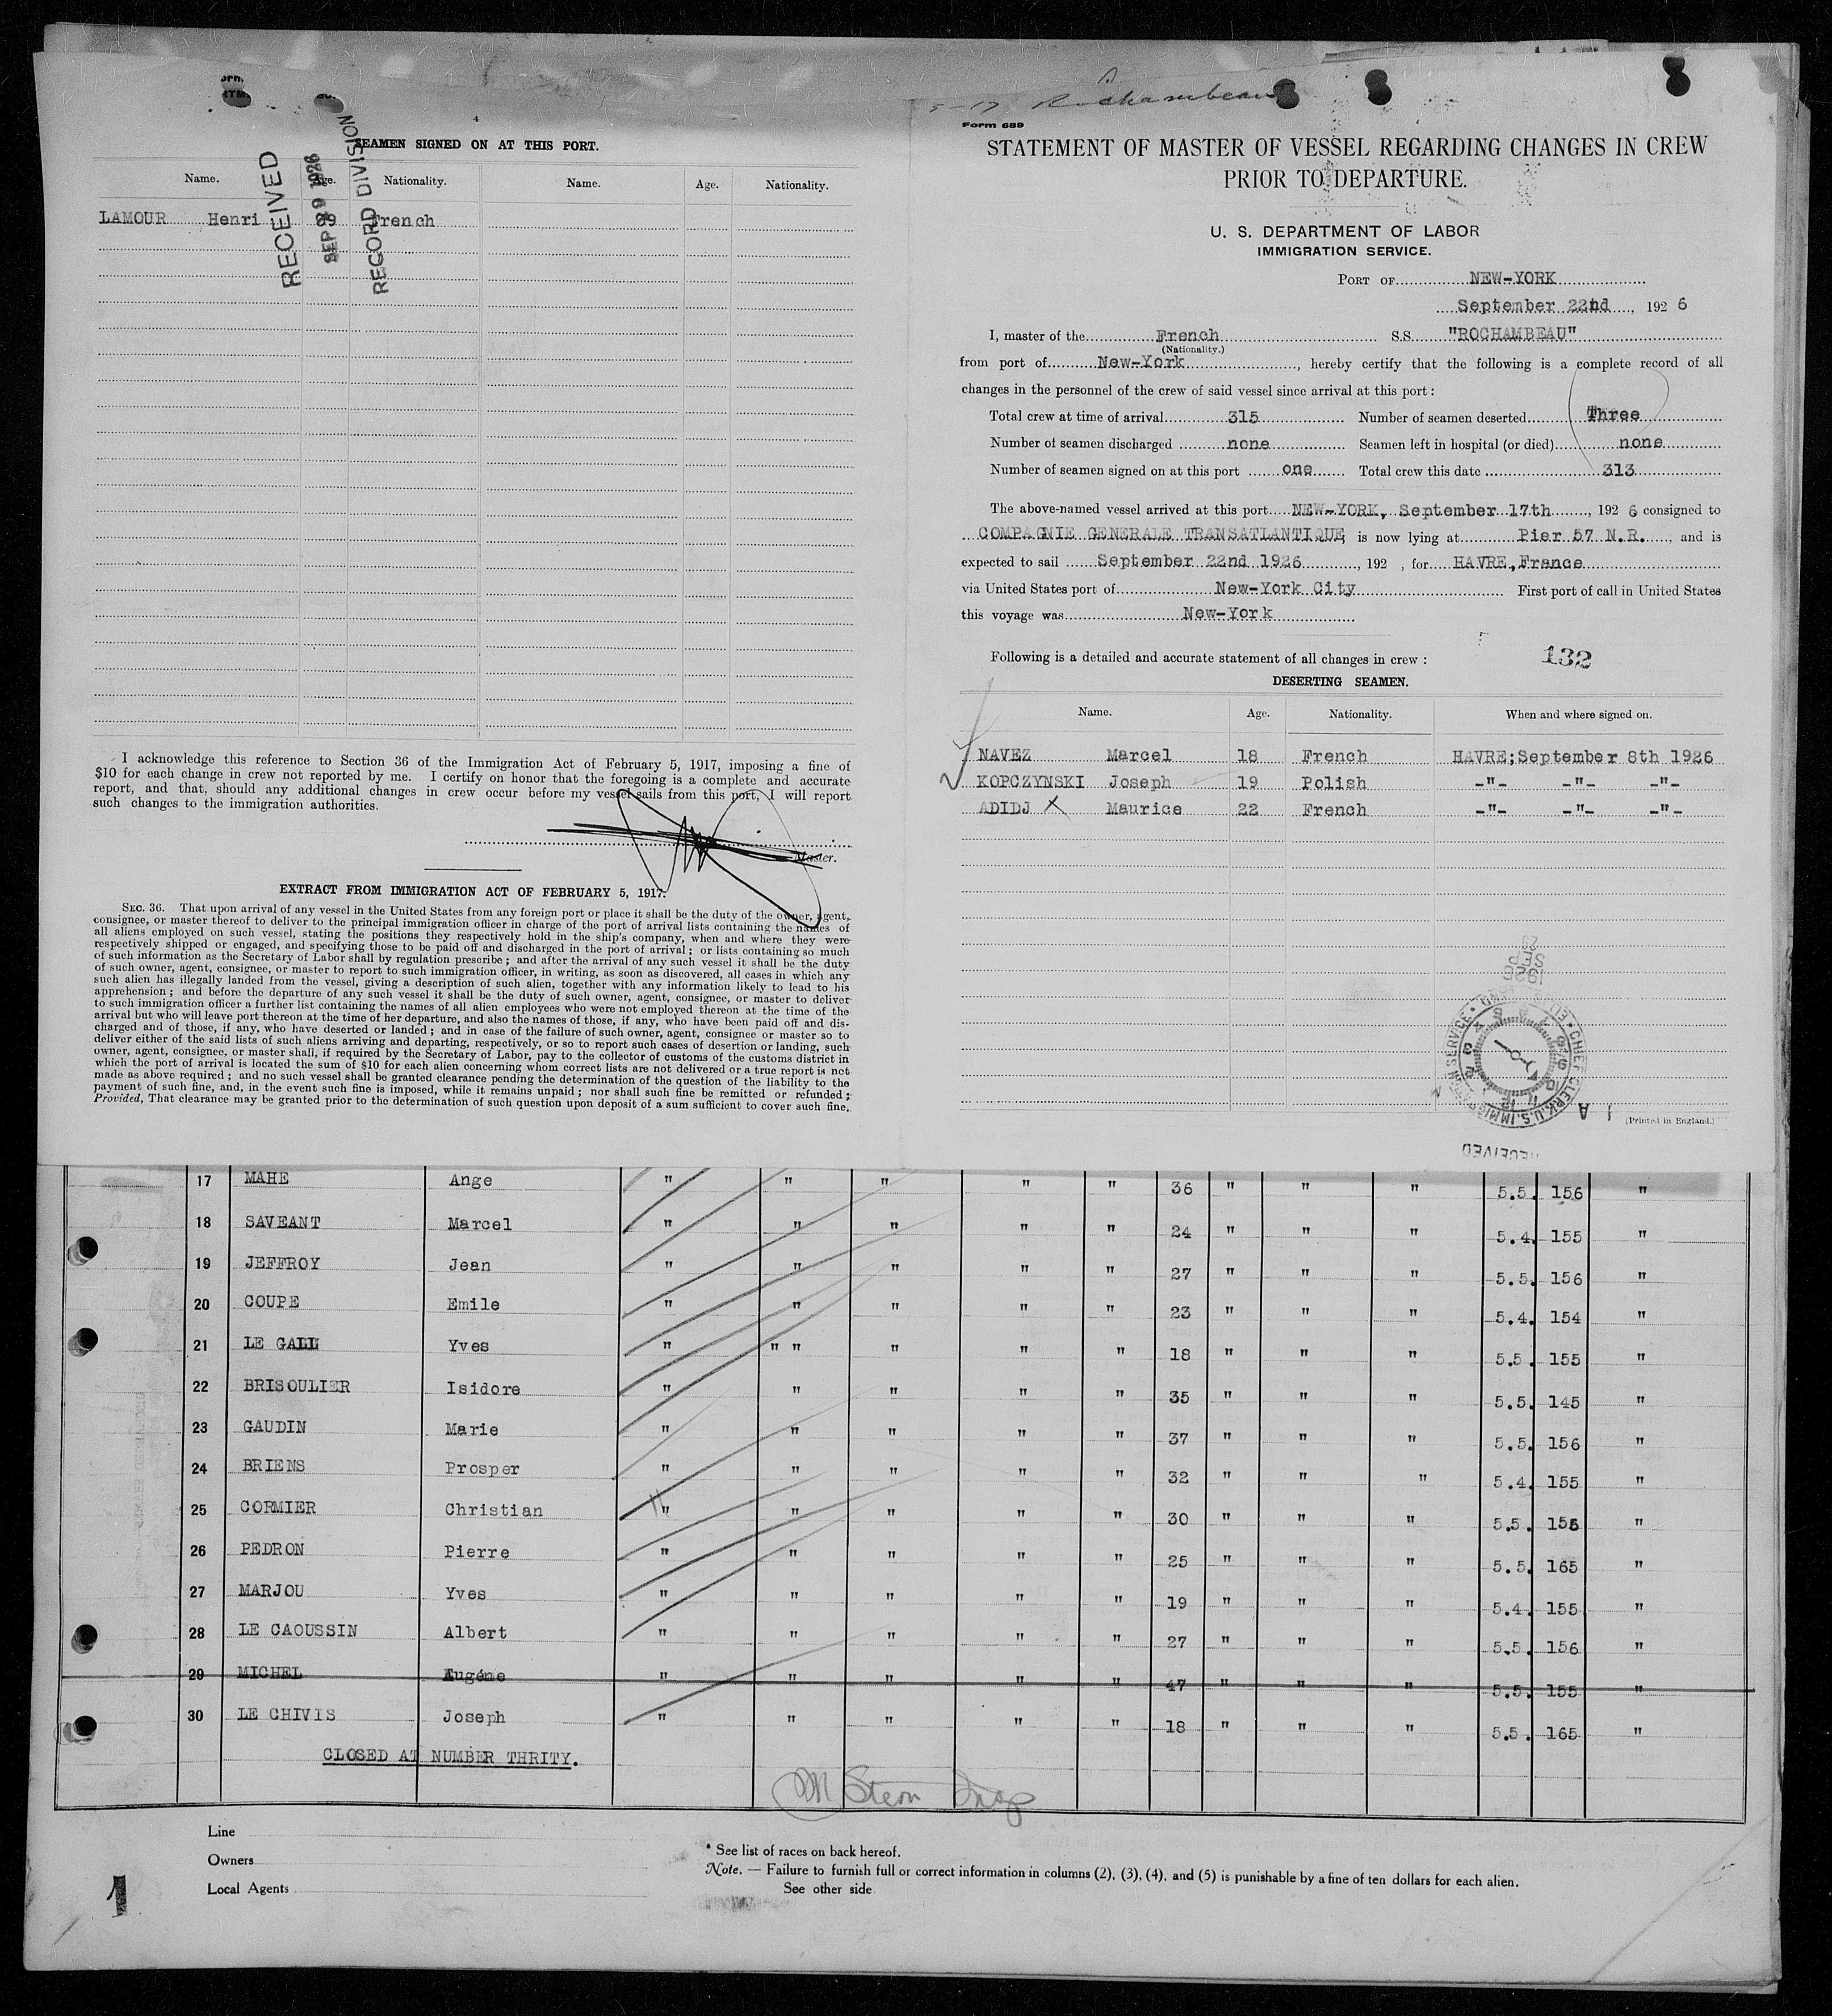 4
SEAMEN SIGNED ON AT THIS PORT.
Name. Age. Nationality. Name. Age. Nationality.
LAMOUR Henri 39 French
RECEIVED
SEP 29 1926
RECORD DIVISION
I acknowledge this reference to Section 36 of the Immigration Act of February 5, 1917, imposing a fine of
$10 for each change in crew not reported by me. I certify on honor that the foregoing is a complete and accurate
report, and that, should any additional changes in crew occur before my vessel sails from this port, I will report
such changes to the immigration authorities.
Master.
EXTRACT FROM IMMIGRATION ACT OF FEBRUARY 5, 1917.
SEC. 36. That upon arrival of any vessel in the United States from any foreign port or place it shall be the duty of the owner, agent,
consignee, or master thereof to deliver to the principal immigration officer in charge of the port of arrival lists containing the names of
all aliens employed on such vessel, stating the positions they respectively hold in the ship's company, when and where they were
respectively shipped or engaged, and specifying those to be paid off and discharged in the port of arrival; or lists containing so much
of such information as the Secretary of Labor shall by regulation prescribe; and after the arrival of any such vessel it shall be the duty
of such owner, agent, consignee, or master to report to such immigration officer, in writing, as soon as discovered, all cases in which any
such alien has illegally landed from the vessel, giving a description of such alien, together with any information likely to lead to his
apprehension; and before the departure of any such vessel it shall be the duty of such owner, agent, consignee, or master to deliver
to such immigration officer a further list containing the names of all alien employees who were not employed thereon at the time of the
arrival but who will leave port thereon at the time of her departure, and also the names of those, if any, who have been paid off and dis-
charged and of those, if any, who have deserted or landed; and in case of the failure of such owner, agent, consignee or master so to
deliver either of the said lists of such aliens arriving and departing, respectively, or so to report such cases of desertion or landing, such
owner, agent, consignee, or master shall, if required by the Secretary of Labor, pay to the collector of customs of the customs district in
which the port of arrival is located the sum of $10 for each alien concerning whom correct lists are not delivered or a true report is not
made as above required; and no such vessel shall be granted clearance pending the determination of the question of the liability to the
payment of such fine, and, in the event such fine is imposed, while it remains unpaid; nor shall such fine be remitted or refunded;
Provided, That clearance may be granted prior to the determination of such question upon deposit of a sum sufficient to cover such fine.
Rochambeau
Form 689
STATEMENT OF MASTER OF VESSEL REGARDING CHANGES IN CREW
PRIOR TO DEPARTURE.
U. S. DEPARTMENT OF LABOR
IMMIGRATION SERVICE.
PORT OF NEW-YORK
September 22nd, 1926
I, master of the French S.S. "ROCHAMBEAU"
(Nationality.)
from port of New-York, hereby certify that the following is a complete record of all
changes in the personnel of the crew of said vessel since arrival at this port:
Total crew at time of arrival 315 Number of seamen deserted Three
Number of seamen discharged none Seamen left in hospital (or died) none
Number of seamen signed on at this port one Total crew this date 313
The above-named vessel arrived at this port NEW-YORK, September 17th, 1926 consigned to
COMPAGNIE GENERALE TRANSATLANTIQUE, is now lying at Pier 57 N.R., and is
expected to sail September 22nd 1926, 192 , for HAVRE, France
via United States port of New-York City First port of call in United States
this voyage was New-York
Following is a detailed and accurate statement of all changes in crew: 132
DESERTING SEAMEN.
Name. Age. Nationality. When and where signed on.
NAVEZ Marcel 18 French HAVRE; September 8th 1926
KOPCZYNSKI Joseph 19 Polish -"- -"- -"-
ADIDJ X Maurice 22 French -"- -"- -"-
1926
SEP
29
CHIEF CLERK U.S. IMMIGRATION SERVICE
(Printed in England.)
RECEIVED
17 MAHE Ange " " " " " 36 " " " 5.5. 156 "
18 SAVEANT Marcel " " " " " 24 " " " 5.4. 155 "
19 JEFFROY Jean " " " " " 27 " " " 5.5. 156 "
20 COUPE Emile " " " " " 23 " " " 5.4. 154 "
21 LE GALL Yves " " " " " " 18 " " " 5.5. 155 "
22 BRISOULIER Isidore " " " " " 35 " " " 5.5. 145 "
23 GAUDIN Marie " " " " " 37 " " " 5.5. 156 "
24 BRIENS Prosper " " " " " 32 " " " 5.4. 155 "
25 CORMIER Christian " " " " " 30 " " " 5.5. 155 "
26 PEDRON Pierre " " " " " 25 " " " 5.5. 165 "
27 MARJOU Yves " " " " " 19 " " " 5.4. 155 "
28 LE CAOUSSIN Albert " " " " " 27 " " " 5.5. 156 "
29 MICHEL Eugéne " " " " " 47 " " " 5.5. 155 "
30 LE CHIVIS Joseph " " " " " 18 " " " 5.5. 165 "
CLOSED AT NUMBER THRITY.
M Stern Insp
Line
Owners
Local Agents
* See list of races on back hereof.
Note. — Failure to furnish full or correct information in columns (2), (3), (4), and (5) is punishable by a fine of ten dollars for each alien.
See other side
1